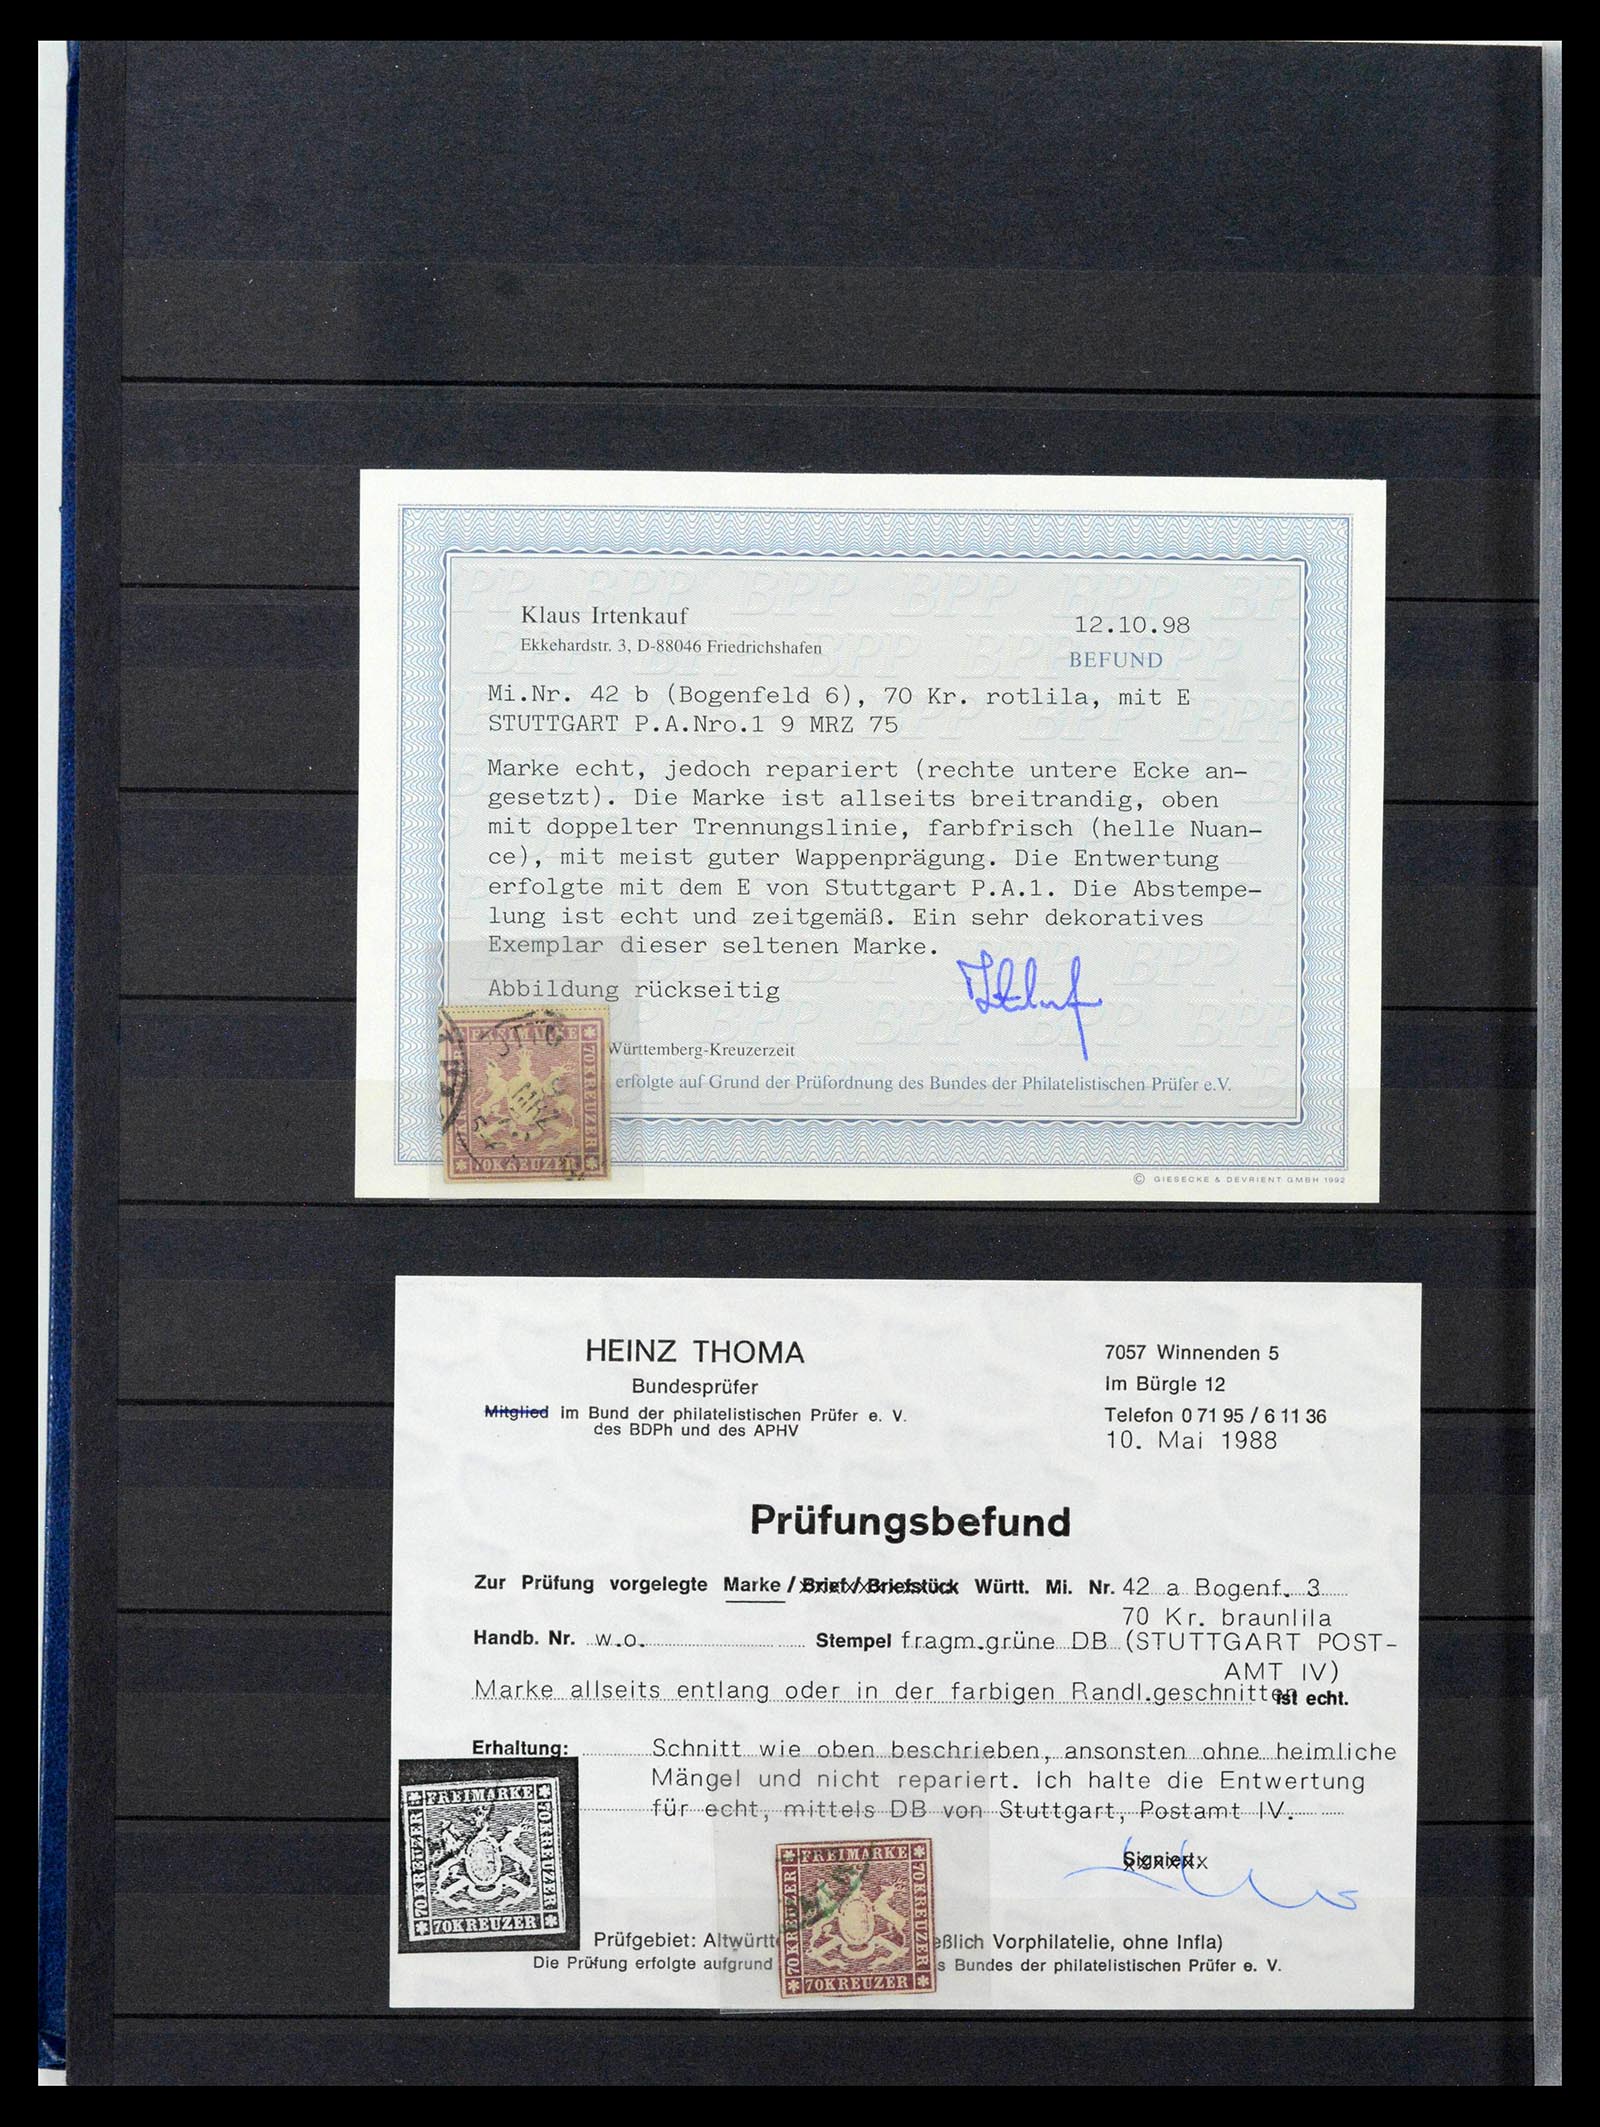 Klaus Irtenkauf
Ekkehardstr. 3, D-88046 Friedrichshafen
12.10.98
BEFUND
Mi.Nr. 42 b (Bogenfeld 6), 70 Kr. rotlila, mit E
STUTTGART P.A.Nro.1 9 MRZ 75
Marke echt, jedoch repariert (rechte untere Ecke an-
gesetzt). Die Marke ist allseits breitrandig, oben
mit doppelter Trennungslinie, farbfrisch (helle Nuan-
ce), mit meist guter Wappenprägung. Die Entwertung
erfolgte mit dem E von Stuttgart P.A.1. Die Abstempe-
lung ist echt und zeitgemäß. Ein sehr dekoratives
Exemplar dieser seltenen Marke.
Abbildung rückseitig
Württemberg-Kreuzerzeit
erfolgte auf Grund der Prüfordnung des Bundes der Philatelistischen Prüfer e.V.
FREIMARKE
70 KREUZER
MRZ
70 KREUZER
© GIESECKE & DEVRIENT GMBH 1992
HEINZ THOMA
Bundesprüfer
Mitglied im Bund der philatelistischen Prüfer e. V.
des BDPh und des APHV
7057 Winnenden 5
Im Bürgle 12
Telefon 0 71 95 / 6 11 36
10. Mai 1988
Prüfungsbefund
Zur Prüfung vorgelegte Marke / Brief / Briefstück Württ. Mi. Nr. 42 a Bogenf. 3
70 Kr. braunlila
Handb. Nr. w.o. Stempel fragm.grüne DB (STUTTGART POST-
AMT IV)
Marke allseits entlang oder in der farbigen Randl.geschnitten ist echt.
Erhaltung: Schnitt wie oben beschrieben, ansonsten ohne heimliche
Mängel und nicht repariert. Ich halte die Entwertung
für echt, mittels DB von Stuttgart, Postamt IV.
Signiert:
FREIMARKE
70 KREUZER
70 KREUZER
70 KREUZER
FREIMARKE
70 KREUZER
70 KREUZER
70 KREUZER
Prüfgebiet: Altwürtt eßlich Vorphilatelie, ohne Infla)
Die Prüfung erfolgte aufgrund s Bundes der philatelistischen Prüfer e. V.